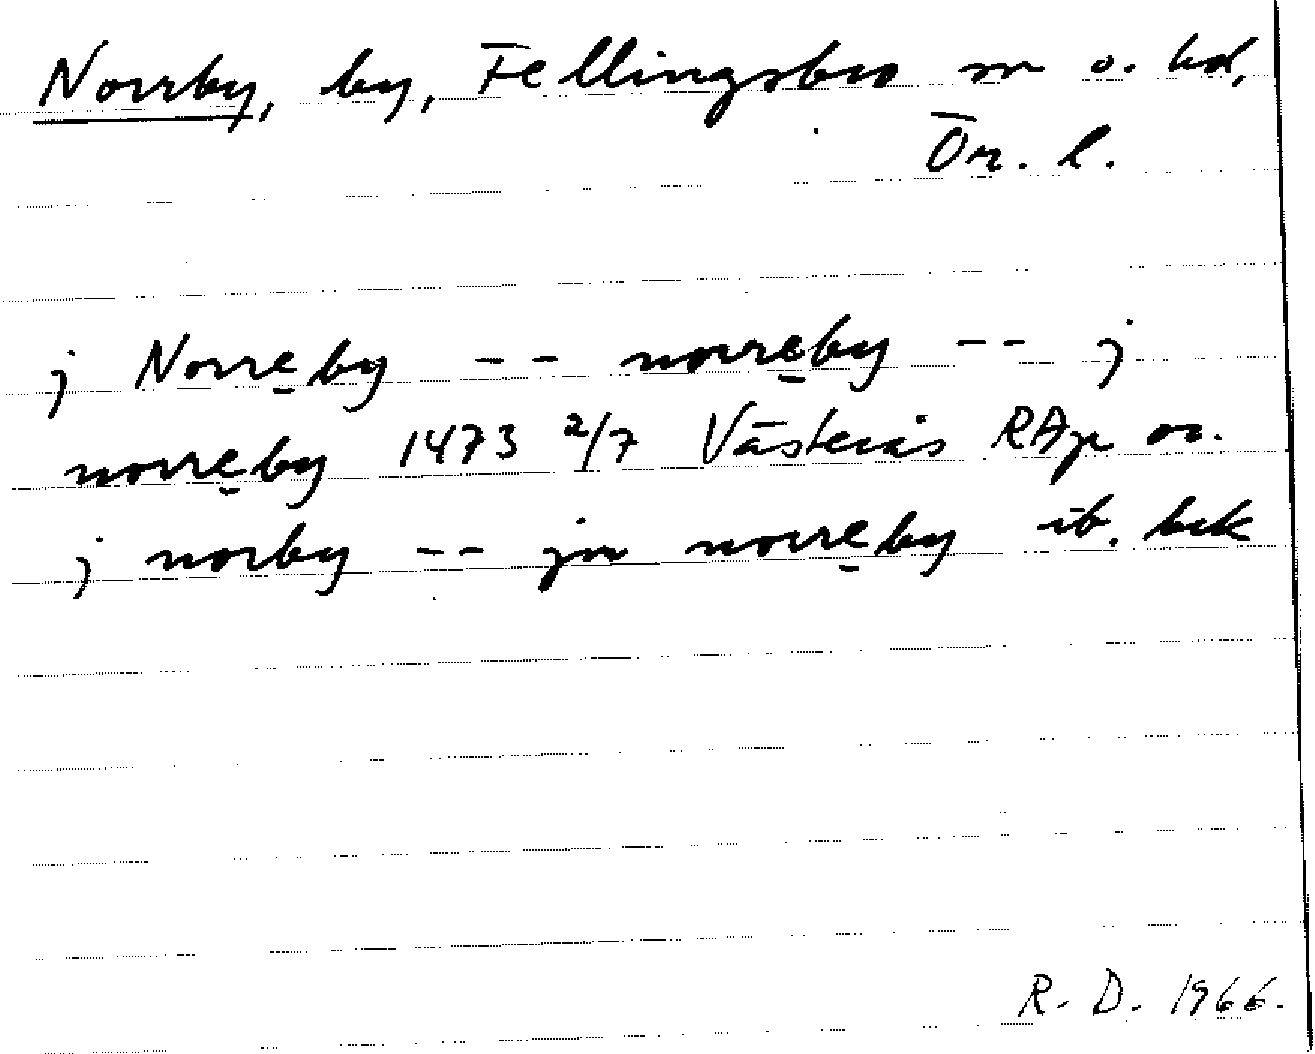 Norrby, by, Fellingsbro sn o. hd,
Ör. l.
j Norreby -- norreby -- j
norreby 1473 2/7 Västerås RAp or.
j norby -- jn norreby ib. brk
R. D. 1966.